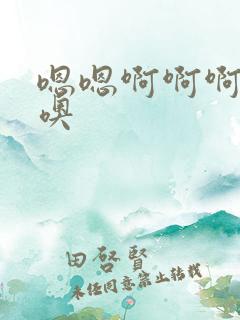 嗯嗯啊啊啊
噢
田啓賢
未经同意禁止转载